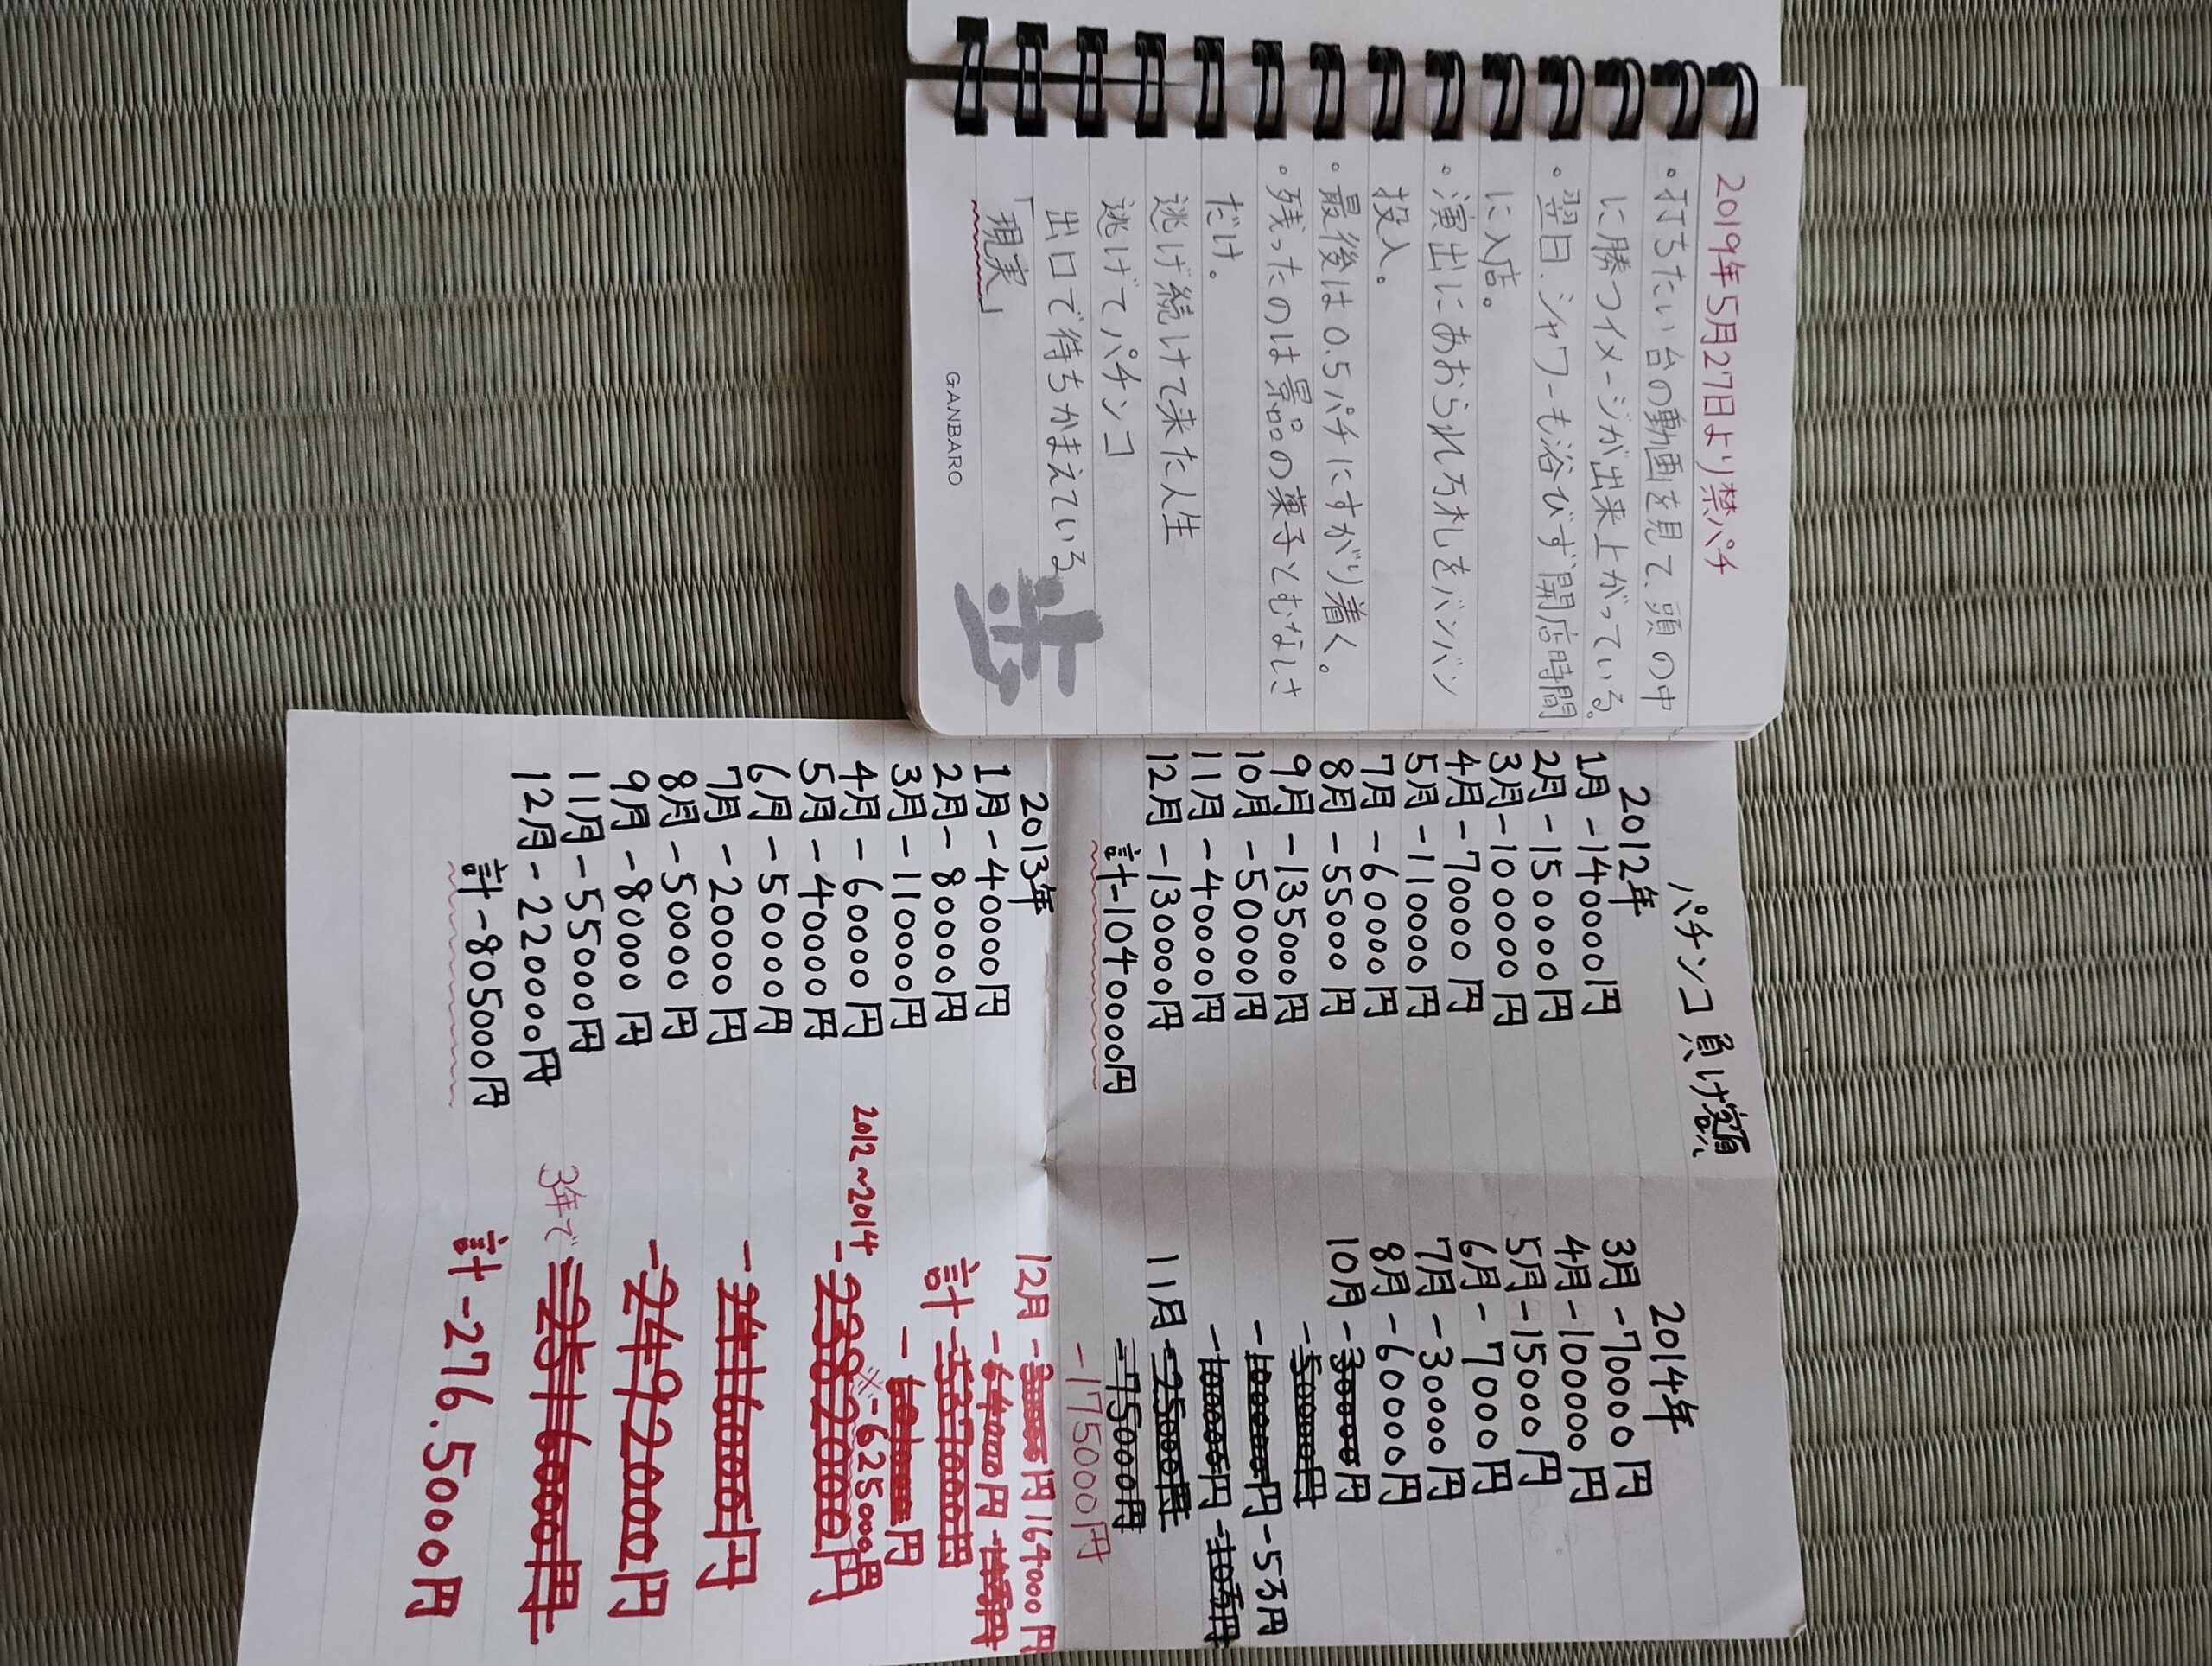 2019年5月27日より禁パチ
・打ちたい台の動画を見て、頭の中
に勝つイメージが出来上がっている。
・翌日、シャワーも浴びず開店時間
に入店。
・演出にあおられ万札をバンバン
投入。
・最後は0.5パチにすがり着く。
・残ったのは景品の菓子とむなしさ
だけ。
逃げ続けて来た人生
逃げてパチンコ
出口で待ちかまえている
「現実」
GANBARO
歩
パチンコ負け額
2012年
1月 -140000円
2月 -150000円
3月 -100000円
4月 -70000円
5月 -110000円
7月 -60000円
8月 -55000円
9月 -135000円
10月 -50000円
11月 -40000円
12月 -130000円
計-1040000円
2013年
1月 -40000円
2月 -80000円
3月 -110000円
4月 -60000円
5月 -40000円
6月 -50000円
7月 -20000円
8月 -50000円
9月 -80000円
11月 -55000円
12月 -220000円
計-805000円
2014年
3月 -70000円
4月 -100000円
5月 -15000円
6月 -7000円
7月 -3000円
8月 -60000円
10月 -30000円
-50000円
-5万円
11月 -25000円
-75000円
-175000円
12月 164000円
-64000円
計
2012~2014
※-625000円
-2382000円
-2492000円
3年で -2516000円
計-276.5000円